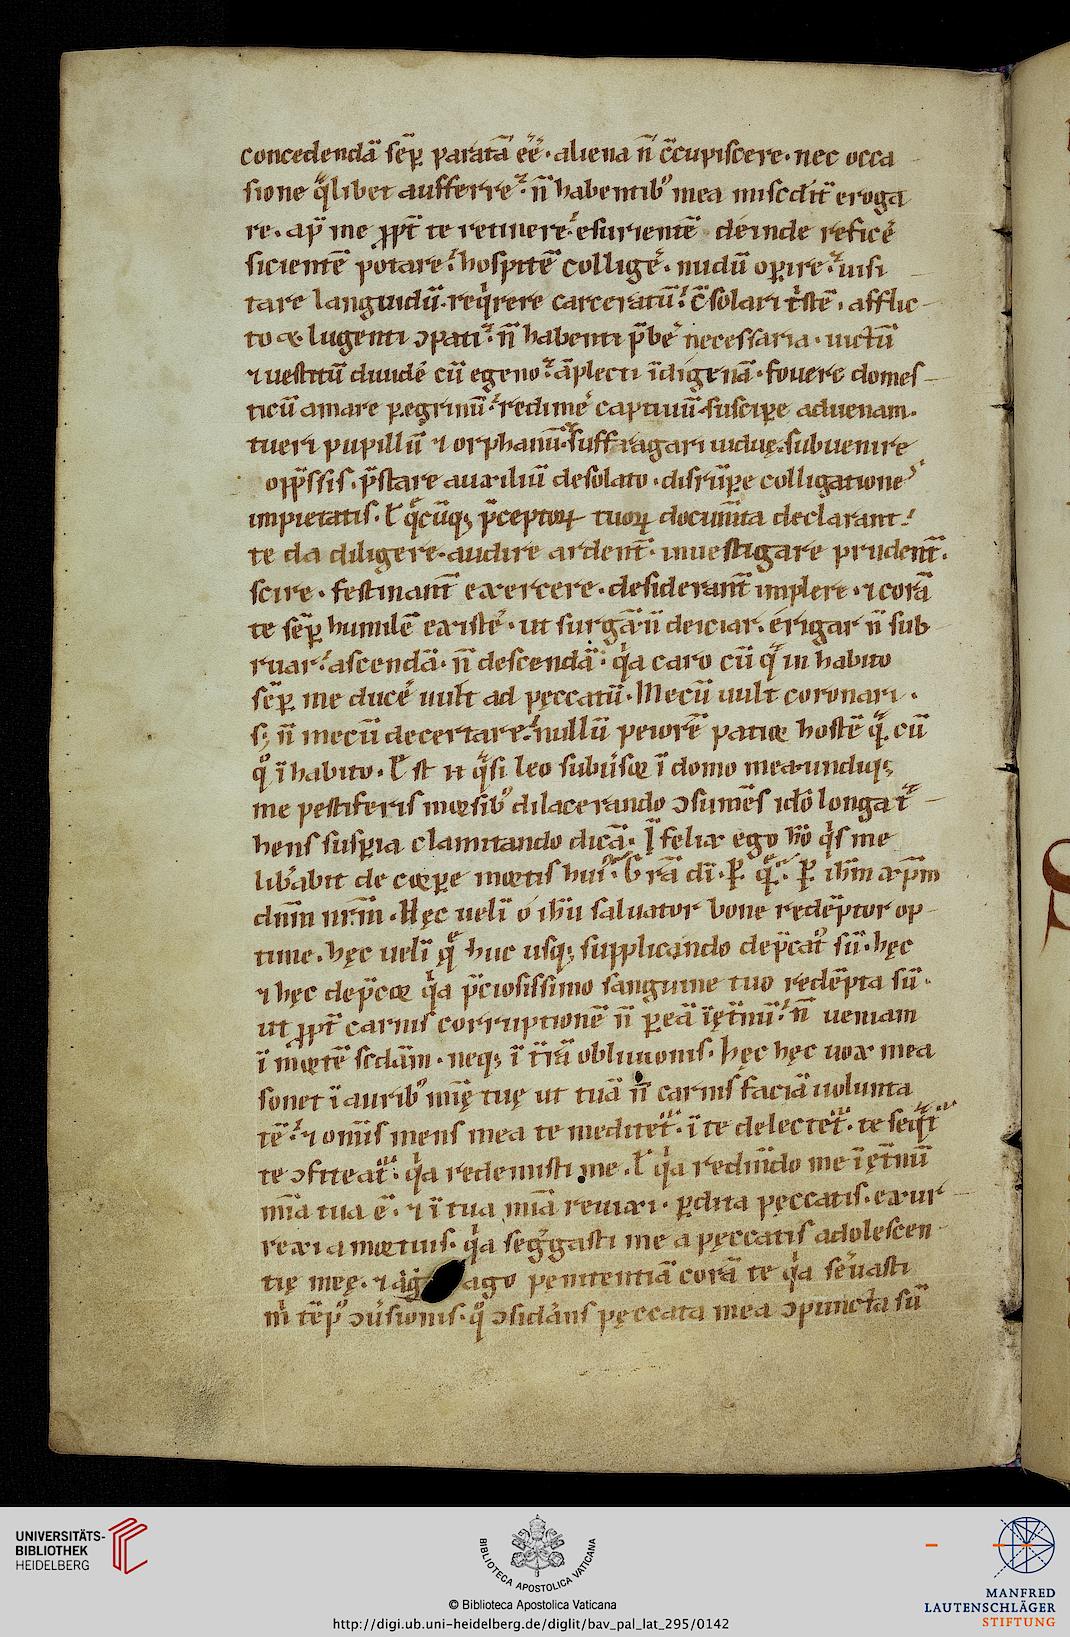 concedendā sēp paratā ēē. aliena n̄ c̄cupiscere. nec occa
sione q̄libet aufferre. n̄ habentib᾽ mea miscdit eroga
re. ap̄ me pp̄t te retinere. esurientē deinde reficē
sicientē potare. hospitē colligē. nudū opire. uisi
tare languidū. reqrere carceratū. c̄solari tstē. afflic
to & lugenti ɔpati. n̄ habenti p̄bē necessaria. uictū
⁊ uestitū diuidē cū egeno. āplecti īdigenā. fouere domes
ticū amare pegrinū. redimē captiuū. suscipe aduenam.
tueri pupillū ⁊ orphanū. suffragari uiduę. subuenire
opp̄ssis. p̄stare auxiliū desolato. disrūpe colligatione
impietatis. ł q̄cūq; p̄ceptoꝝ tuoꝝ documīta declarant.
te da diligere. audire ardent̄. inuestigare prudent̄.
scire. festinant̄ exercere. desiderant̄ implere. ⁊ corā
te sēp humilē existē. ut surgā. n̄ deiciar. erigar n̄ sub
ruar. ascendā. n̄ descendā. qa caro cū q̄ inhabito
sēp me ducē uult ad pęccatū. Mecū uult coronari.
s; n̄ mecū decertare. nullū peiorē patior hostē q̄ cū
q° īhabito.
me pestiferis morsib᾽ dilacerando ɔsumēs idō longa t
hens suspiria clamitando dicā. Īfelix ego hō qs me
lib̄abit de corpe mortis hui᾽. ḡra dī. p. q̄. p ihm xp̄m
dnm nrm̄. Hęc uelī o ihū saluator bone redēptor op
time. hęc uelī q̄ huc usq; supplicando dep̄cat᾽ sū. hęc
⁊ hęc dep̄cor qa p̄ciosissimo sanguine tuo redēpta sū.
ut pp̄t carnis corruptionē n̄ peā īęt̄nū. n̄ ueniam
ī mortē scdām. neq; ī t̄rā obliuionis. hęc hęc uox mea
sonet ī aurib᾽ mīę tuę ut tuā n̄ carnis faciā uolunta
tē. ⁊ omīs mens mea te meditet̄. ī te delectet̄. te seqt̄
te ɔfiteat̄. qa redemisti me. ł qa redimdo me īęt̄nū
mīa tua ē. ⁊ ī tua mīa reuixi. pdita pęccatis. exur
rexi a mortuis. qa segḡasti me a pęccatis adolescen
tię meę. ⁊ ago penitentiā corā te qa seruasti
m tēp᾽ ɔūsionis. q° ɔsidans pęccata mea ɔpuncta sū
UNIVERSITÄTS-
BIBLIOTHEK
HEIDELBERG
BIBLIOTECA APOSTOLICA VATICANA
© Biblioteca Apostolica Vaticana
http://digi.ub.uni-heidelberg.de/diglit/bav_pal_lat_295/0142
MANFRED
LAUTENSCHLÄGER
STIFTUNG